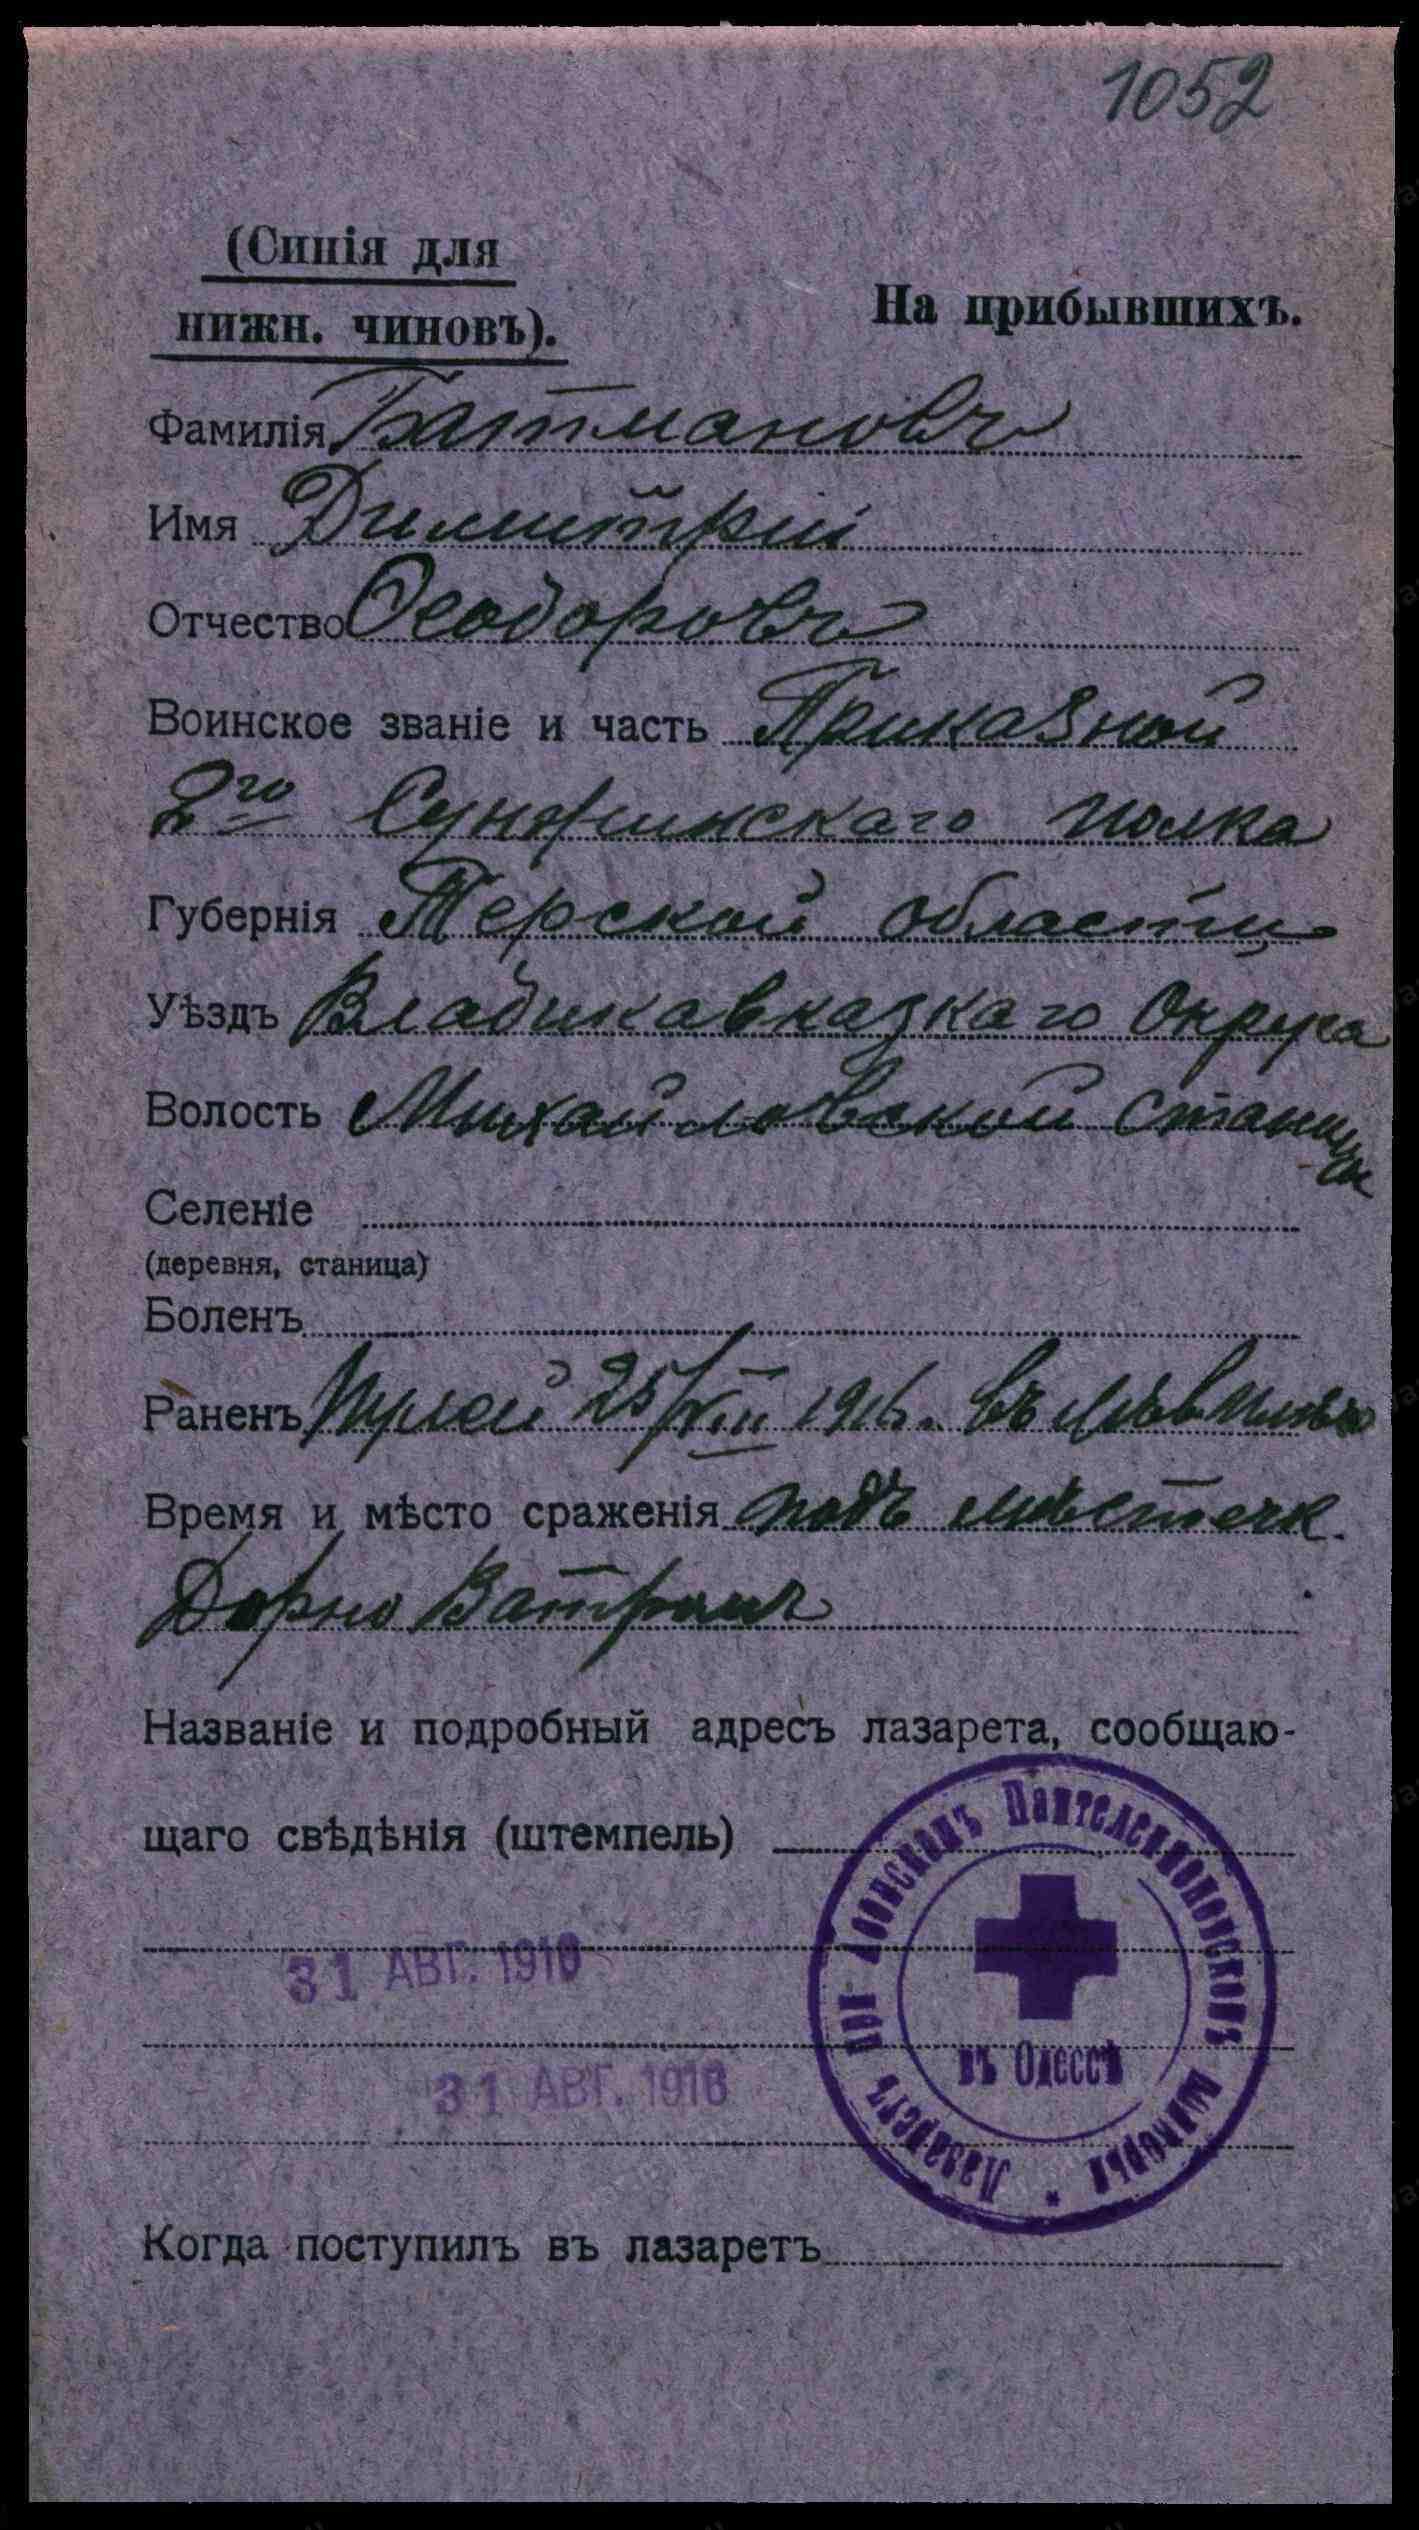 1052
(Синія для
нижн. чиновъ).
На прибывшихъ.
Фамилія Батмановъ
Имя Димитрій
Отчество Ѳеодоровъ
Воинское званіе и часть Приказной
2го Сунженскаго полка
Губернія Терской области
Уѣздъ Владикавказкаго Округа
Волость Михайловской станицы
Селеніе
(деревня, станица)
Боленъ
Раненъ Пулей 25/VIII 1916. въ лѣв плечо
Время и мѣсто сраженія подъ мѣстечк.
Дорно Ватрами
Названіе и подробный адресъ лазарета, сообщаю-
щаго свѣдѣнія (штемпель)
Лазаретъ при Аѳонскомъ Пантелеимоновскомъ
въ Одессѣ
31 АВГ. 1916
31 АВГ. 1916
Когда поступилъ въ лазаретъ